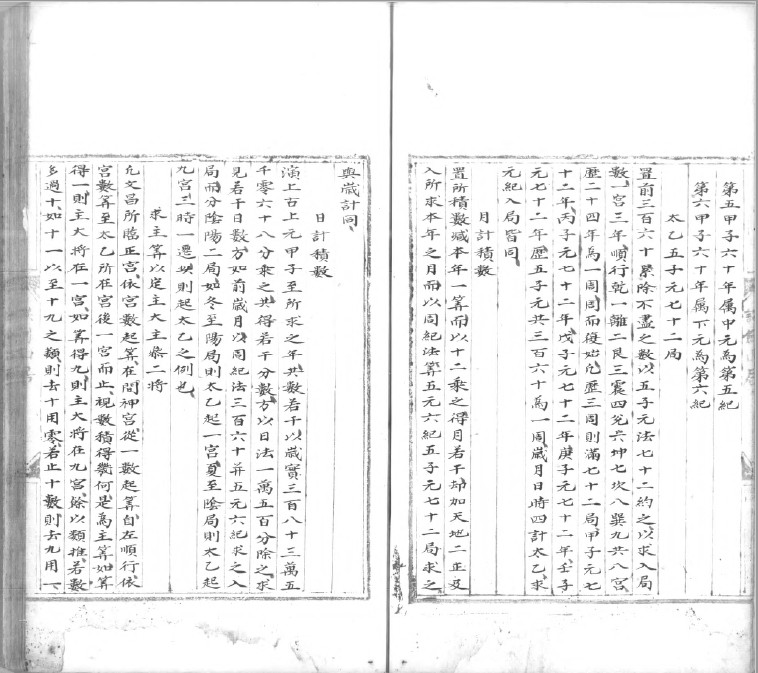 第五甲子六十年属中元為第五紀
第六甲子六十年属下元為第六紀
太乙五子元七十二局
置前三百六十累除不盡之數以五子元法七十二約之以求入局
數一宮三年順行乾一離二艮三震四兌六坤七坎八巽九共八宮
歷二十四年為一周周而復始凡歷三周則滿七十二局甲子元七
十二年丙子元七十二年戊子元七十二年庚子元七十二年壬子
元七十二年歷五子元共三百六十為一周歲月日時四計太乙求
元紀入局皆同
月計積數
置所積數減本年一算而以十二乘之得月若干却加天地二正及
入所求本年之月而以周紀法算五元六紀五子元七十二局求之
與歲計同
日計積數
演上古上元甲子至所求之年共數若干以歲實三百八十三萬五
千零六十八分乘之共得若干分數方以日法一萬五百分除之求
見若干日數方如前歲月以周紀法三百六十并五元六紀求之入
局而分陰陽二局如冬至陽局則太乙起一宮夏至陰局則太乙起
九宮三時一遷 則起太乙之例也
求主算以定主大主參二將
凡文昌所臨正宮依宮數起算在間神宮從一數起算自在順行依
宮數算至太乙所在宮後一宮而止視數積得幾何是為主算如算
得一則主大將在一宮如算得九則主大將在九宮餘以類推若數
多過十如十一以至十九之類則去十用零若止十數則去九用一